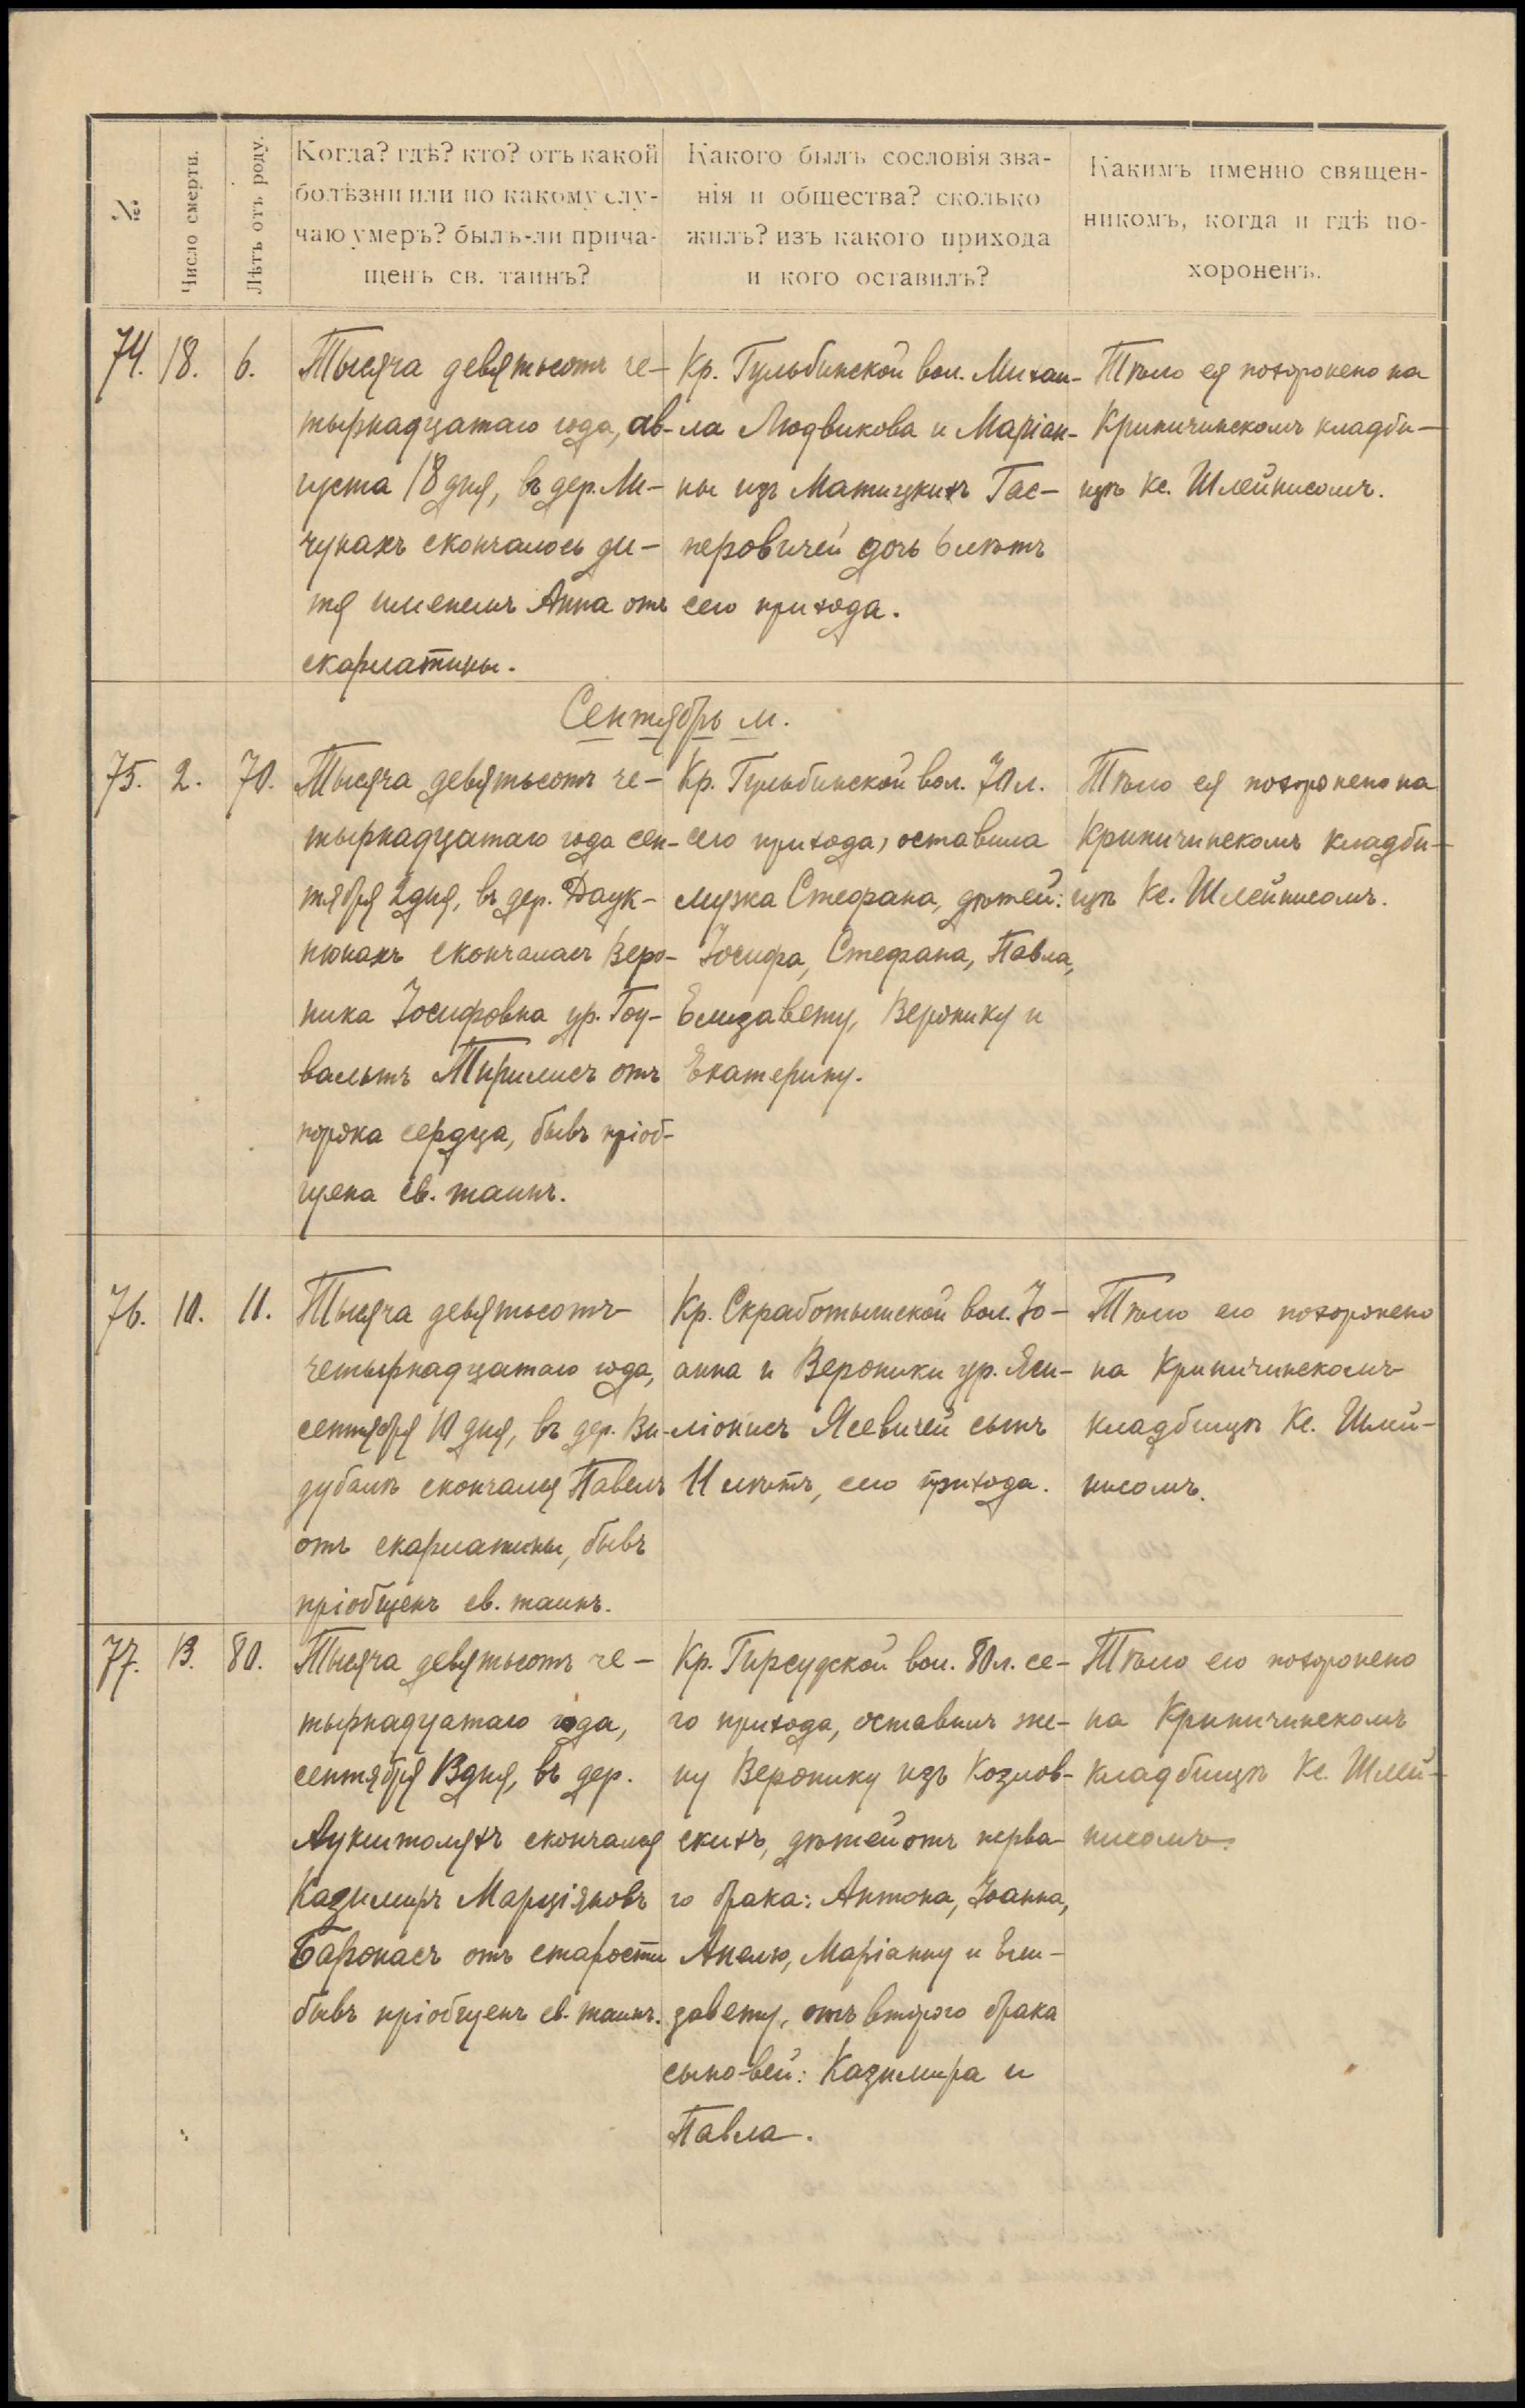 №
Число смерти.
Лѣтъ отъ роду.
Когда? гдѣ? кто? отъ какой
болѣзни или по какому слу-
чаю умеръ? былъ-ли прича-
щенъ св. таинъ?
Какого былъ сословія зва-
нія и общества? сколько
жилъ? изъ какого прихода
и кого оставилъ?
Какимъ именно священ-
никомъ, когда и гдѣ по-
хороненъ.
74. 18. 6.
Тысяча девятьсотъ че-
тырнадцатаго года, ав-
густа 18 дня, въ дер. Ми-
чунахъ скончалось ди-
тя именемъ Анна отъ
скарлатины.
Кр. Гульбинской вол. Михаи-
ла Людвикова и Маріан-
ны изъ Матицкихъ Гас-
перовичей дочь 6 лѣтъ
сего прихода.
Тѣло ея похоронено на
Криничинскомъ кладби-
щѣ кс. Шлейнисомъ.
Сентябрь м.
75. 2. 70.
Тысяча девятьсотъ че-
тырнадцатаго года сен-
тября 2 дня, въ дер. Даук-
нюнахъ скончалась Веро-
ника Іосифовна ур. Гоу-
вальтъ Тирилисъ отъ
порока сердца, бывъ пріоб-
щена св. таинъ.
Кр. Гульбинской вол. 70 л.
сего прихода, оставила
мужа Стефана, дѣтей:
Іосифа, Стефана, Павла,
Елизавету, Веронику и
Екатерину.
Тѣло ея похоронено на
Криничинскомъ кладби-
щѣ Кс. Шлейнисомъ.
76. 10. 11.
Тысяча девятьсотъ
четырнадцатаго года,
сентября 10 дня, въ дер. Ви-
дубалѣ скончался Павелъ
отъ скарлатины, бывъ
пріобщенъ св. таинъ.
Кр. Скработишской вол. Іо-
анна и Вероники ур. Яси-
ліонисъ Ясевичей сынъ
11 лѣтъ, сего прихода.
Тѣло его похоронено
на Криничинскомъ
кладбищѣ Кс. Шлей-
нисомъ.
77. 13. 80.
Тысяча девятьсотъ че-
тырнадцатаго года,
сентября 13 дня, въ дер.
Аукштоляхъ скончался
Казимиръ Марціяновъ
Баронасъ отъ старости
бывъ пріобщенъ св. таинъ.
Кр. Гирсудской вол. 80 л. се-
го прихода, оставилъ же-
ну Веронику изъ Козлов-
скихъ, дѣтей отъ перва-
го брака: Антона, Іоанна,
Анелю, Маріанну и Ели-
завету, отъ второго брака
сыновей: Казимира и
Павла.
Тѣло его похоронено
на Криничинскомъ
кладбищѣ Кс. Шлей-
нисомъ.